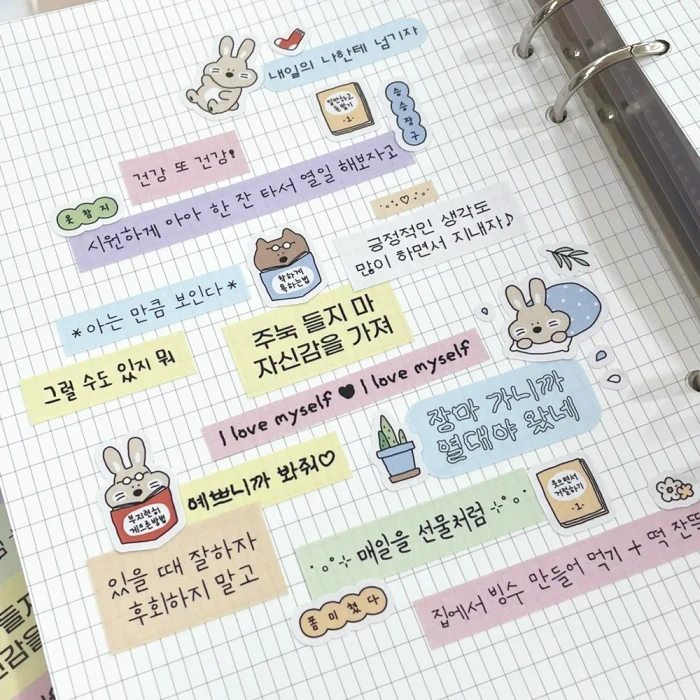 내일의 나한테 넘기자
일만하고
놀벌기
-1-
승승장구
건강 또 건강!
웃참지
시원하게 아아 한 잔 타서 열일 해보자고
긍정적인 생각도
많이 하면서 지내자♪
착하게
욕하는법
*아는 만큼 보인다*
주눅 들지 마
자신감을 가져
그럴 수도 있지 뭐
I love myself ♥ I love myself
장마 가니까
열대야 왔네
예쁘니까 봐줘♡
부지런히
게으른방법
웃으면서
거절하기
-2-
매일을 선물처럼
있을 때 잘하자
후회하지 말고
폼미쳤다
집에서 빙수 만들어 먹기 + 떡 잔뜩